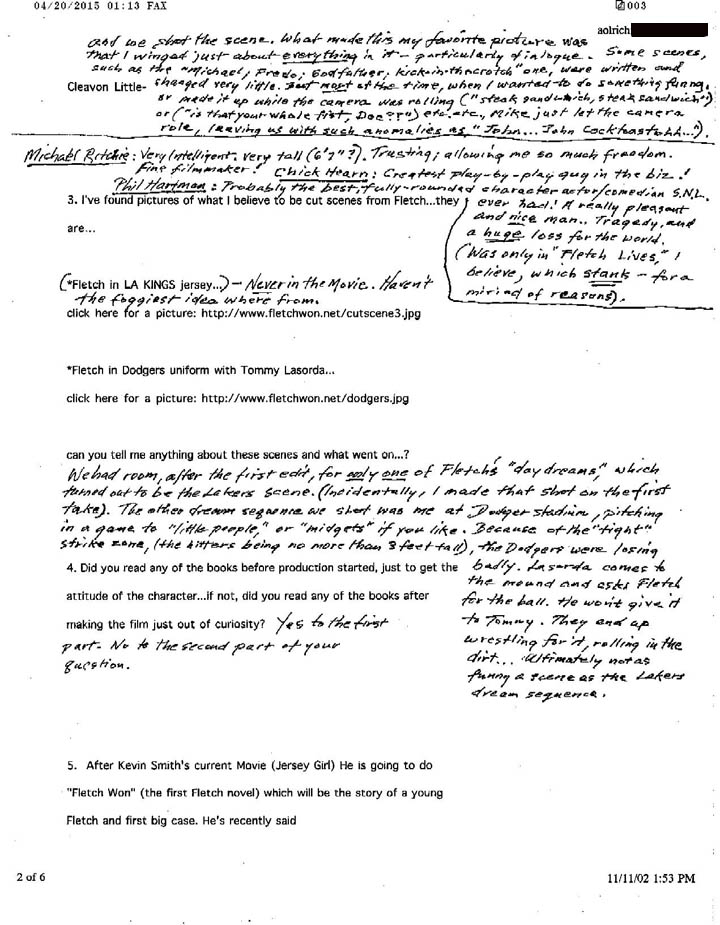 04/20/2015 01:13 FAX
003
aolrich
and we shot the scene. What made this my favorite picture was
that I winged just about everything in it - particularly dialogue. Some scenes,
such as the "Michael, Fredo, Godfather, kick-in-the-crotch" one, were written and
Cleavon Little- changed very little. But most of the time, when I wanted to do something funny,
or made it up while the camera was rolling ("steak sandwich, steak sandwich")
or ("is that your whole fist, Doc??") etc., etc., Mike just let the camera
role, leaving us with such anomalies as "John... John Cocktoastohh...").
Michael Ritchie: Very Intelligent. Very tall (6'7"?). Trusting; allowing me so much freedom.
Fine filmmaker! Chick Hearn: Greatest play-by-play guy in the biz.!
Phil Hartman: Probably the best, fully-rounded character actor/comedian S.N.L.
ever had! A really pleasant
and nice man.. Tragedy, and
a huge loss for the world.
(Was only in "Fletch Lives," I
believe, which stank - for a
miriad of reasons).
3. I've found pictures of what I believe to be cut scenes from Fletch...they
are...
(*Fletch in LA KINGS jersey...) - Never in the Movie. Haven't
the foggiest idea where from.
click here for a picture: http://www.fletchwon.net/cutscene3.jpg
*Fletch in Dodgers uniform with Tommy Lasorda...
click here for a picture: http://www.fletchwon.net/dodgers.jpg
can you tell me anything about these scenes and what went on...?
We had room, after the first edit, for only one of Fletch's "day dreams," which
turned out to be the Lakers scene. (Incidentally, I made that shot on the first
take). The other dream sequence we shot was me at Dodger stadium, pitching
in a game to "little people," or "midgets" if you like. Because of the "tight"
strike zone, (the hitters being no more than 3 feet tall), the Dodgers were losing
badly. Lasorda comes to
the mound and asks Fletch
for the ball. He won't give it
to Tommy. They end up
wrestling for it, rolling in the
dirt... Ultimately not as
funny a scene as the Lakers
dream sequence.
4. Did you read any of the books before production started, just to get the
attitude of the character...if not, did you read any of the books after
making the film just out of curiosity? Yes to the first
part. No to the second part of your
question.
5. After Kevin Smith's current Movie (Jersey Girl) He is going to do
"Fletch Won" (the first Fletch novel) which will be the story of a young
Fletch and first big case. He's recently said
2 of 6
11/11/02 1:53 PM